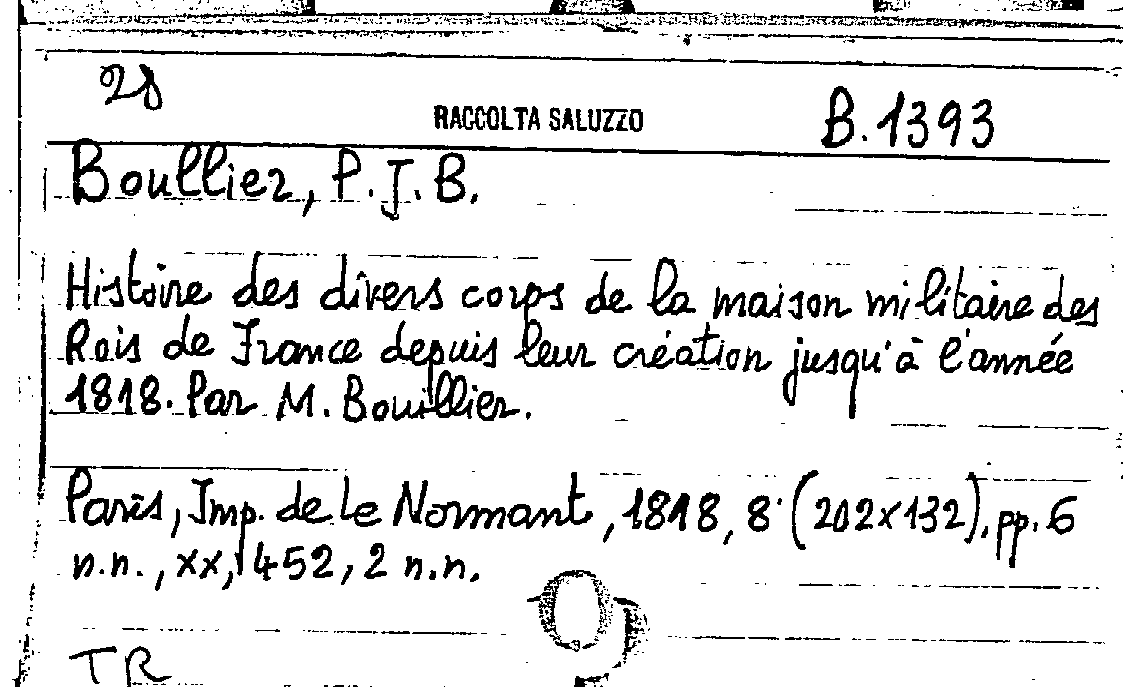 28
RACCOLTA SALUZZO B.1393
Boullier, P.J.B.
Histoire des divers corps de la maison militaire des
Rois de France depuis leur création jusqu'à l'année
1818. Par M. Boullier.
Paris, Imp. de Le Normant, 1818, 8° (202x132), pp. 6
n.n., xx, 452, 2 n.n.
TR